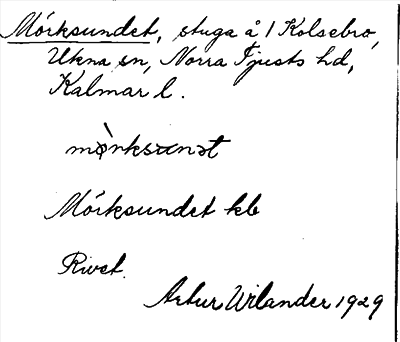 Mörksundet, stuga å 1 Kolsebro,
Ukna sn, Norra Tjusts hd,
Kalmar l.
mö̀rksunət
Mörksundet kb
Rivet.
Artur Wilander 1929